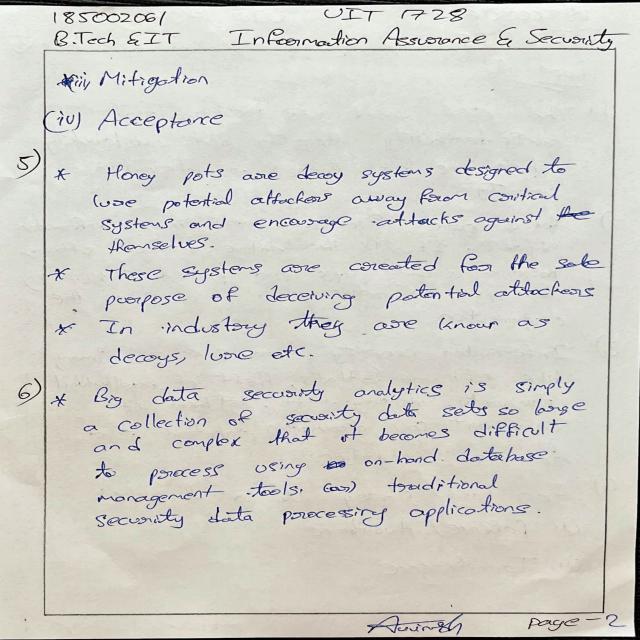 185002061 UIT 1728
B.Tech & IT Information Assurance & Security
iii) Mitigation
(iv) Acceptance
5) * Honey pots are decoy systems designed to
lure potential attackers away from critical
systems and encourage attacks against the
themselves.
* These systems are created for the sole
purpose of deceiving potential attackers
* In industory they are known as
decoys, lure etc.
6) * Big data security analytics is simply
a collection of security data sets so large
and complex that it becomes difficult
to process using on-hand database
management tools. (or) traditional
security data processing applications.
page - 2